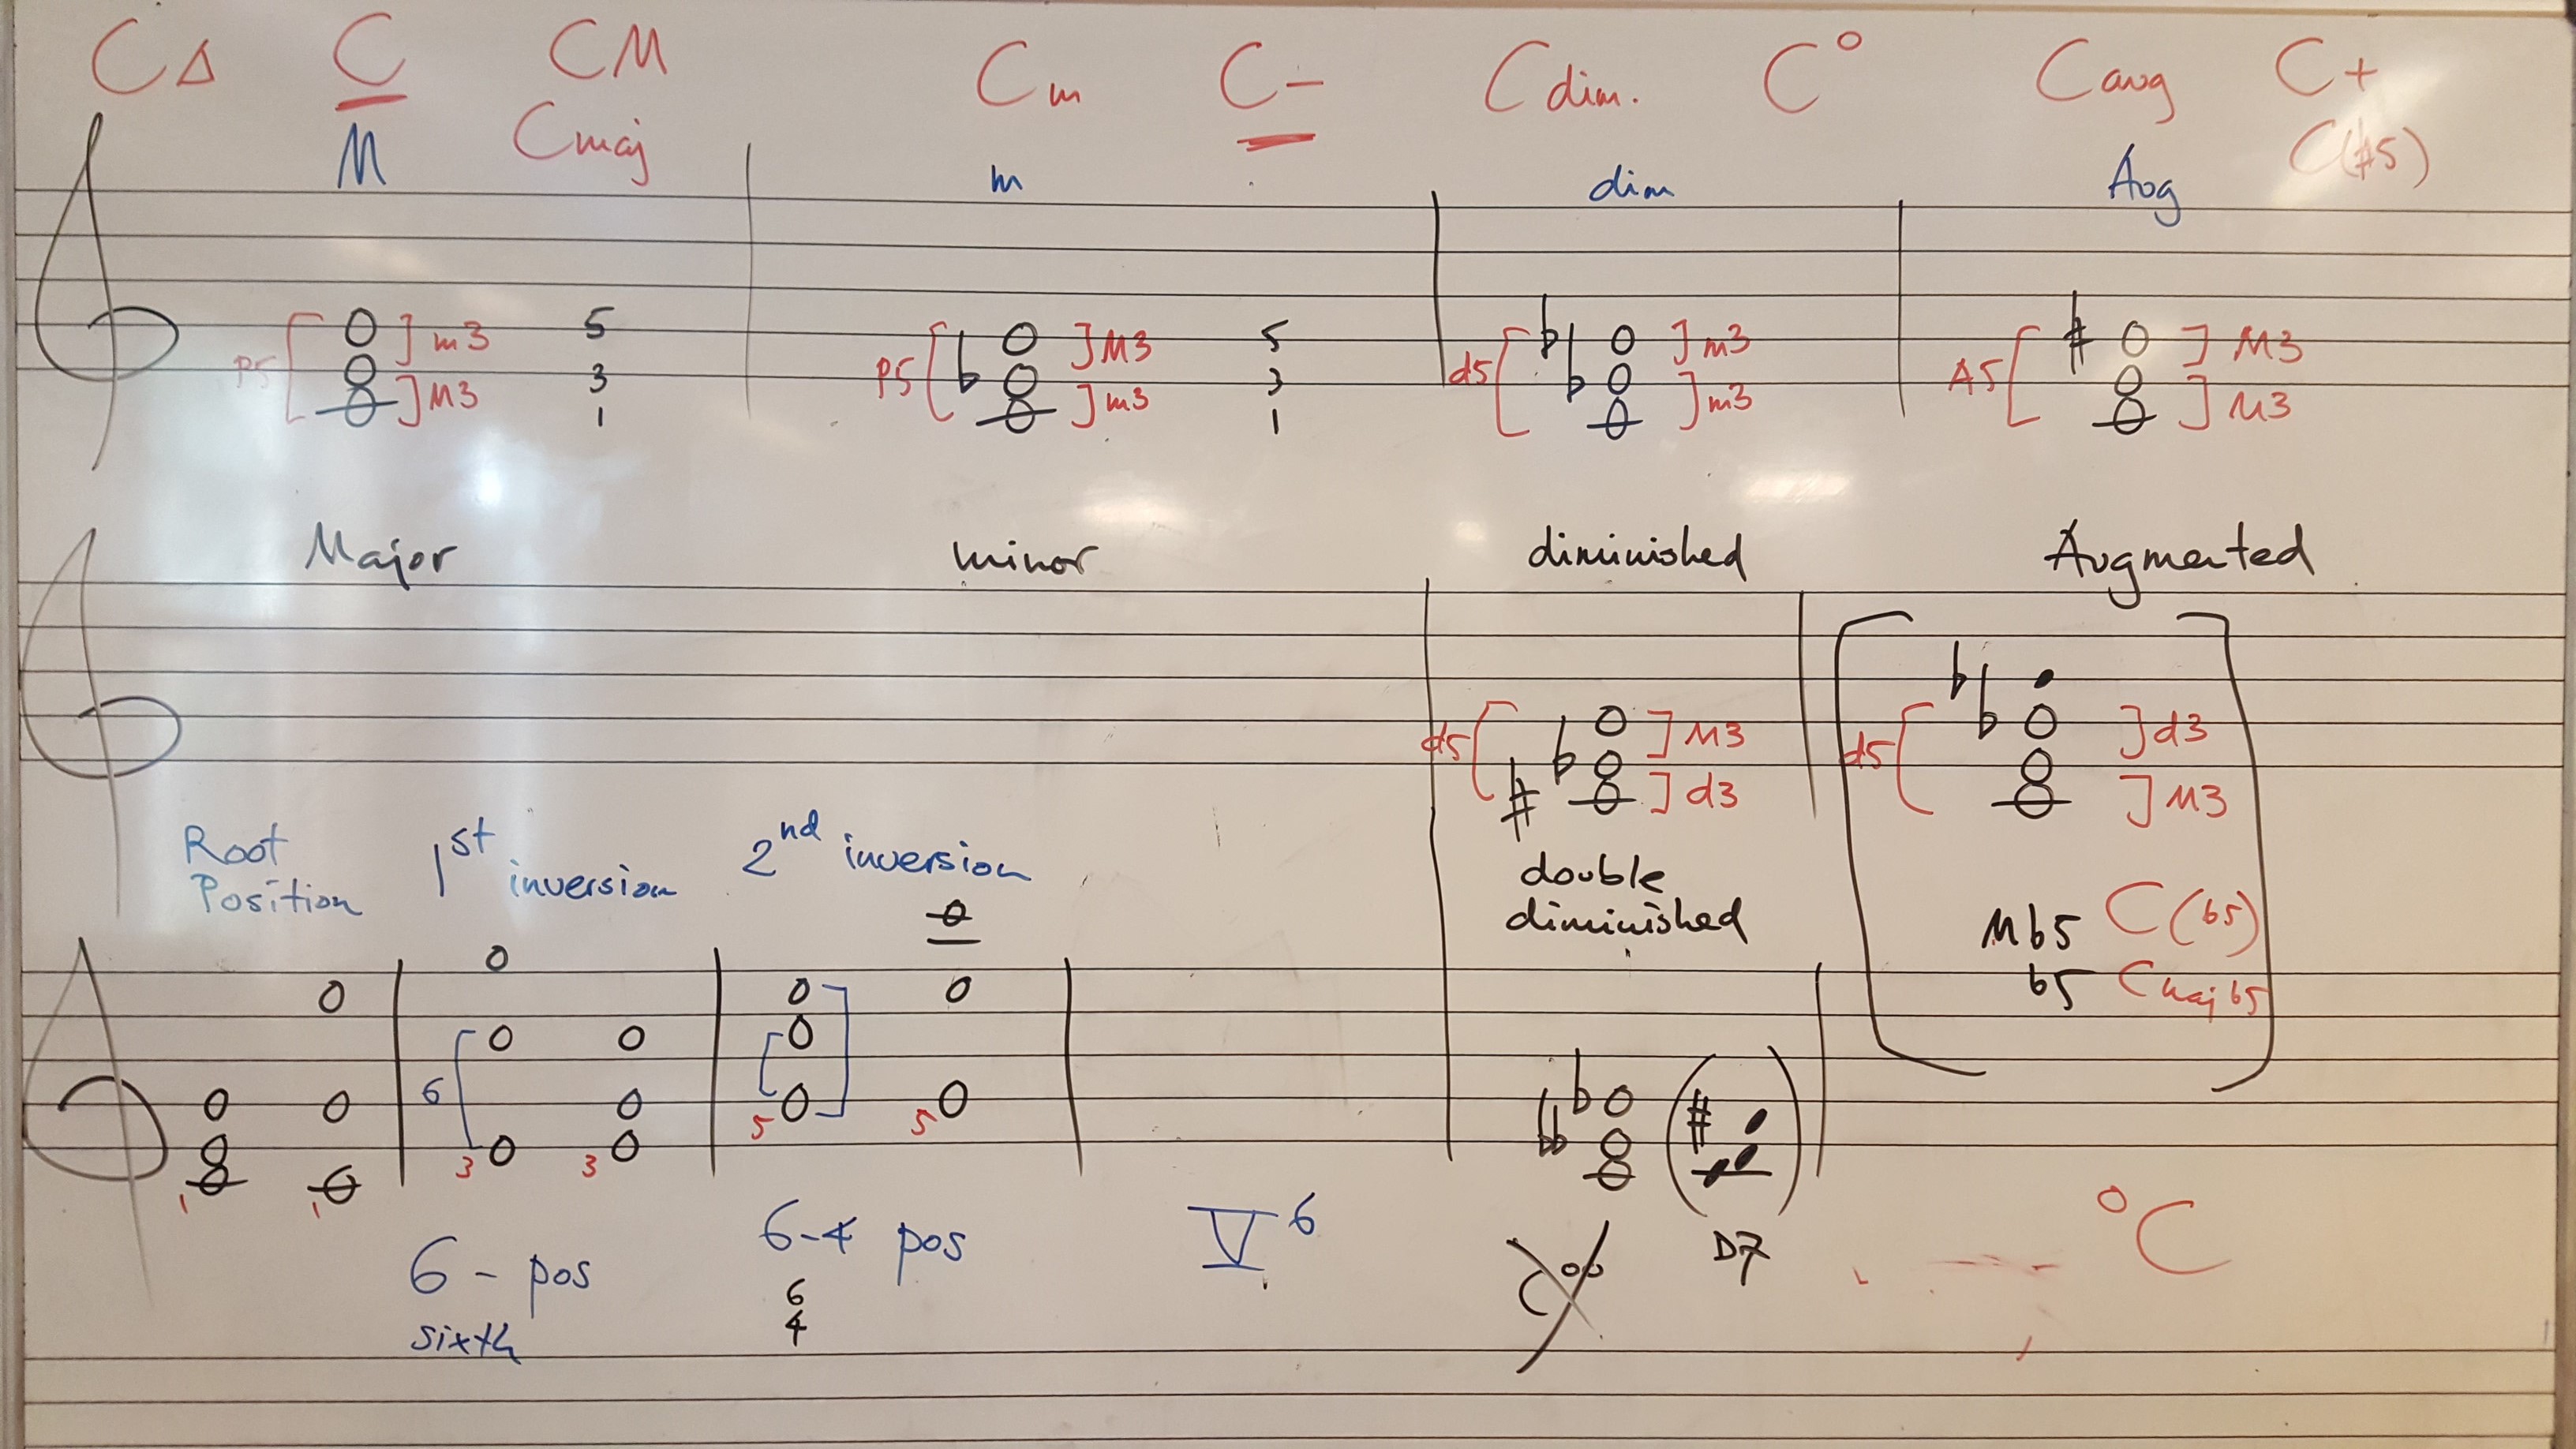 C△ C CM Cm C– Cdim. C° Caug C+
M Cmaj m dim Aug C(#5)
P5 m3 5 P5 M3 5 d5 m3 A5 M3
M3 3 m3 3 m3 M3
1 1
Major minor diminished Augmented
d5 M3 d5 d3
d3 M3
Root Position
1st inversion
2nd inversion
double diminished
Mb5 C(b5)
b5 Cmaj b5
6
1 1 3 3 5 5
6 - pos
sixth
6-4 pos
6
4
V6
C°°
D7
°C